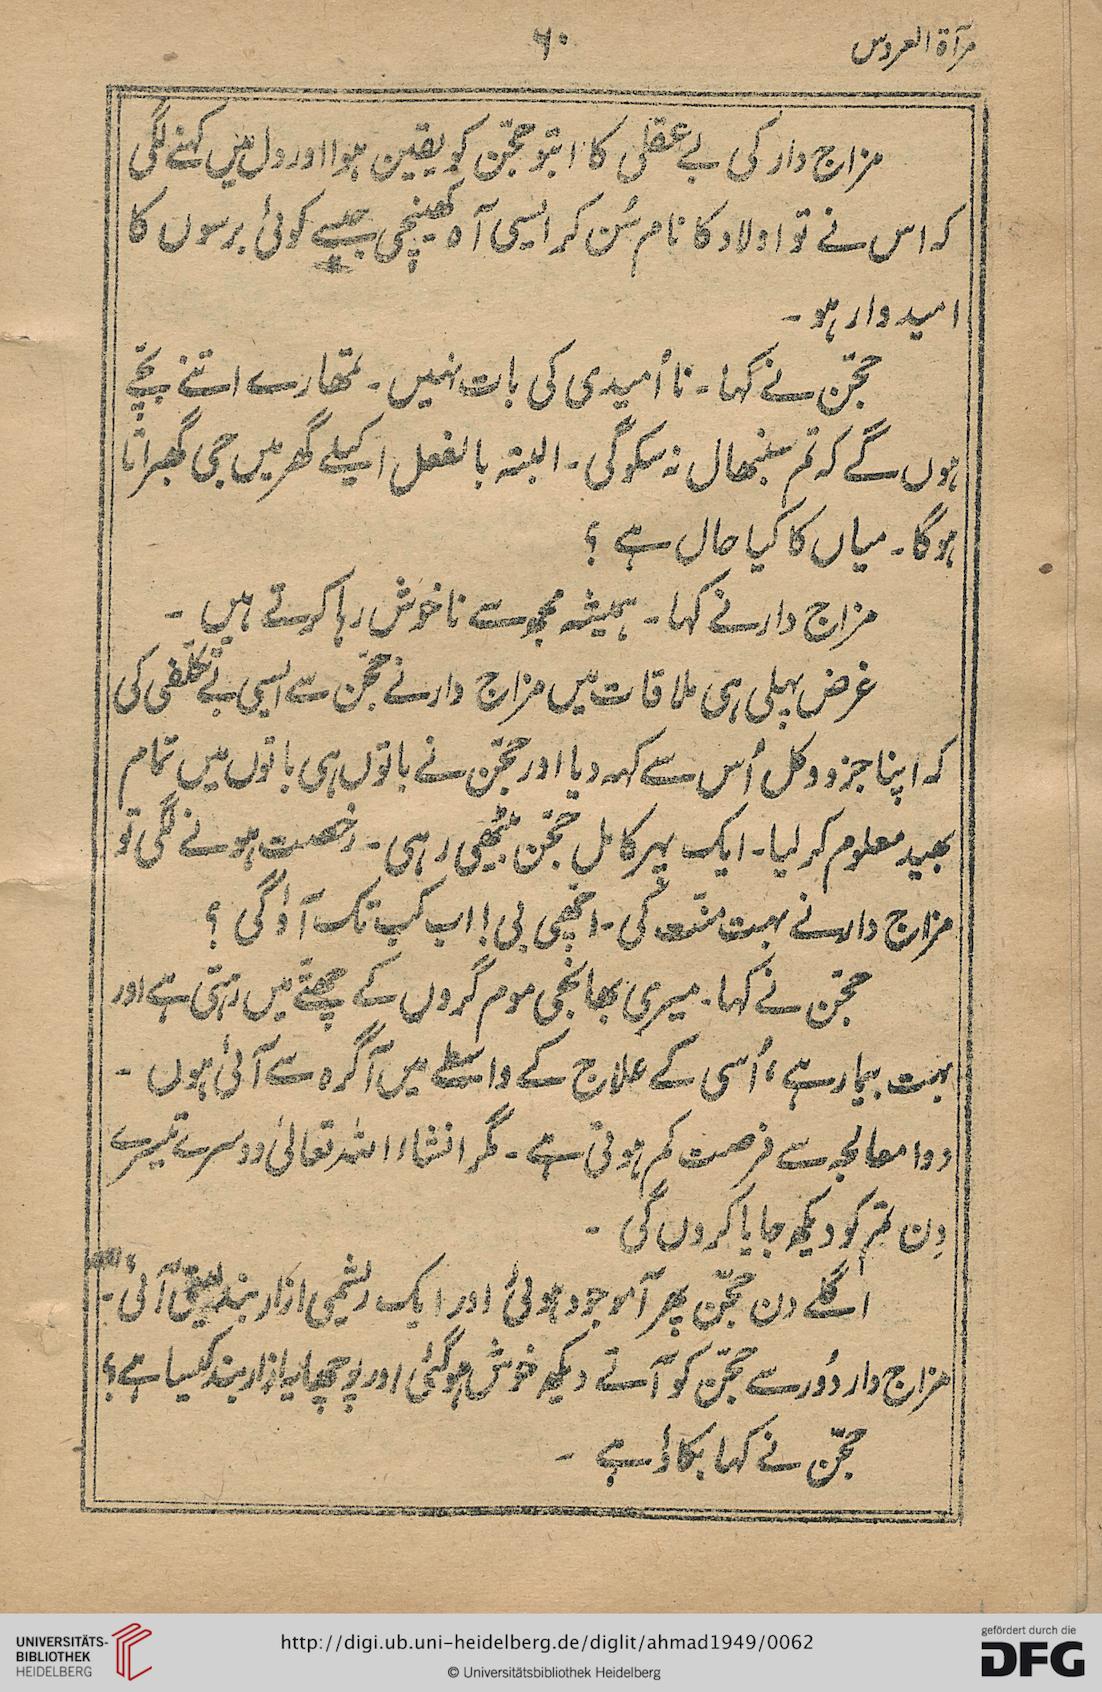 مرآۃ العروس
۶۰
مزاج دار کی بے عقلی کا اب تو حجّن کو یقین ہوا اور دل میں کہنے لگی
کہ اس نے تو اولاد کا نام سُن کر ایسی آہ کھینچی جیسے کوئی برسوں کا
امیدوار ہو۔
حجّن نے کہا۔ نا اُمیدی کی بات نہیں۔ تمھارے اتنے بچّے
ہوں گے کہ تم سنبھال نہ سکو گی۔ البتہ بالفعل اکیلے گھر میں جی گھبراتا
ہوگا۔ میاں کا کیا حال ہے ؟
مزاج دار نے کہا۔ ہمیشہ مجھ سے ناخوش رہا کرتے ہیں۔
غرض پہلی ہی ملاقات میں مزاج دار نے حجّن سے ایسی بے تکلفی کی
کہ اپنا جزو وکل اُس سے کہہ دیا اور حجّن نے باتوں ہی باتوں میں تمام
بھید معلوم کر لیا۔ ایک پہر کامل حجّن بیٹھی رہی۔ رخصت ہونے لگی تو
مزاج دار نے بہت منّت کی۔ اچھّی بی! اب کب تک آؤ گی ؟
حجّن نے کہا۔ میری بھانجی موم گروں کے چھتّے میں رہتی ہے اور
بہت بیمار ہے، اُسی کے علاج کے واسطے میں آگرہ سے آئی ہوں۔
دوا معالجہ سے فرصت کم ہوتی ہے۔ مگر انشاء اللہ تعالیٰ دوسرے تیسرے
دِن تم کو دیکھ جایا کروں گی۔
اگلے دن حجّن پھر آموجود ہوئی اور ایک ریشمی ازار بند لیتی آئی۔
مزاج دار دُور سے حجّن کو آتے دیکھ خوش ہوگئی اور پوچھا یہ ازار بند کیسا ہے؟
حجّن نے کہا بکاؤ ہے۔
UNIVERSITÄTS-
BIBLIOTHEK
HEIDELBERG
http://digi.ub.uni-heidelberg.de/diglit/ahmad1949/0062
© Universitätsbibliothek Heidelberg
gefördert durch die
DFG